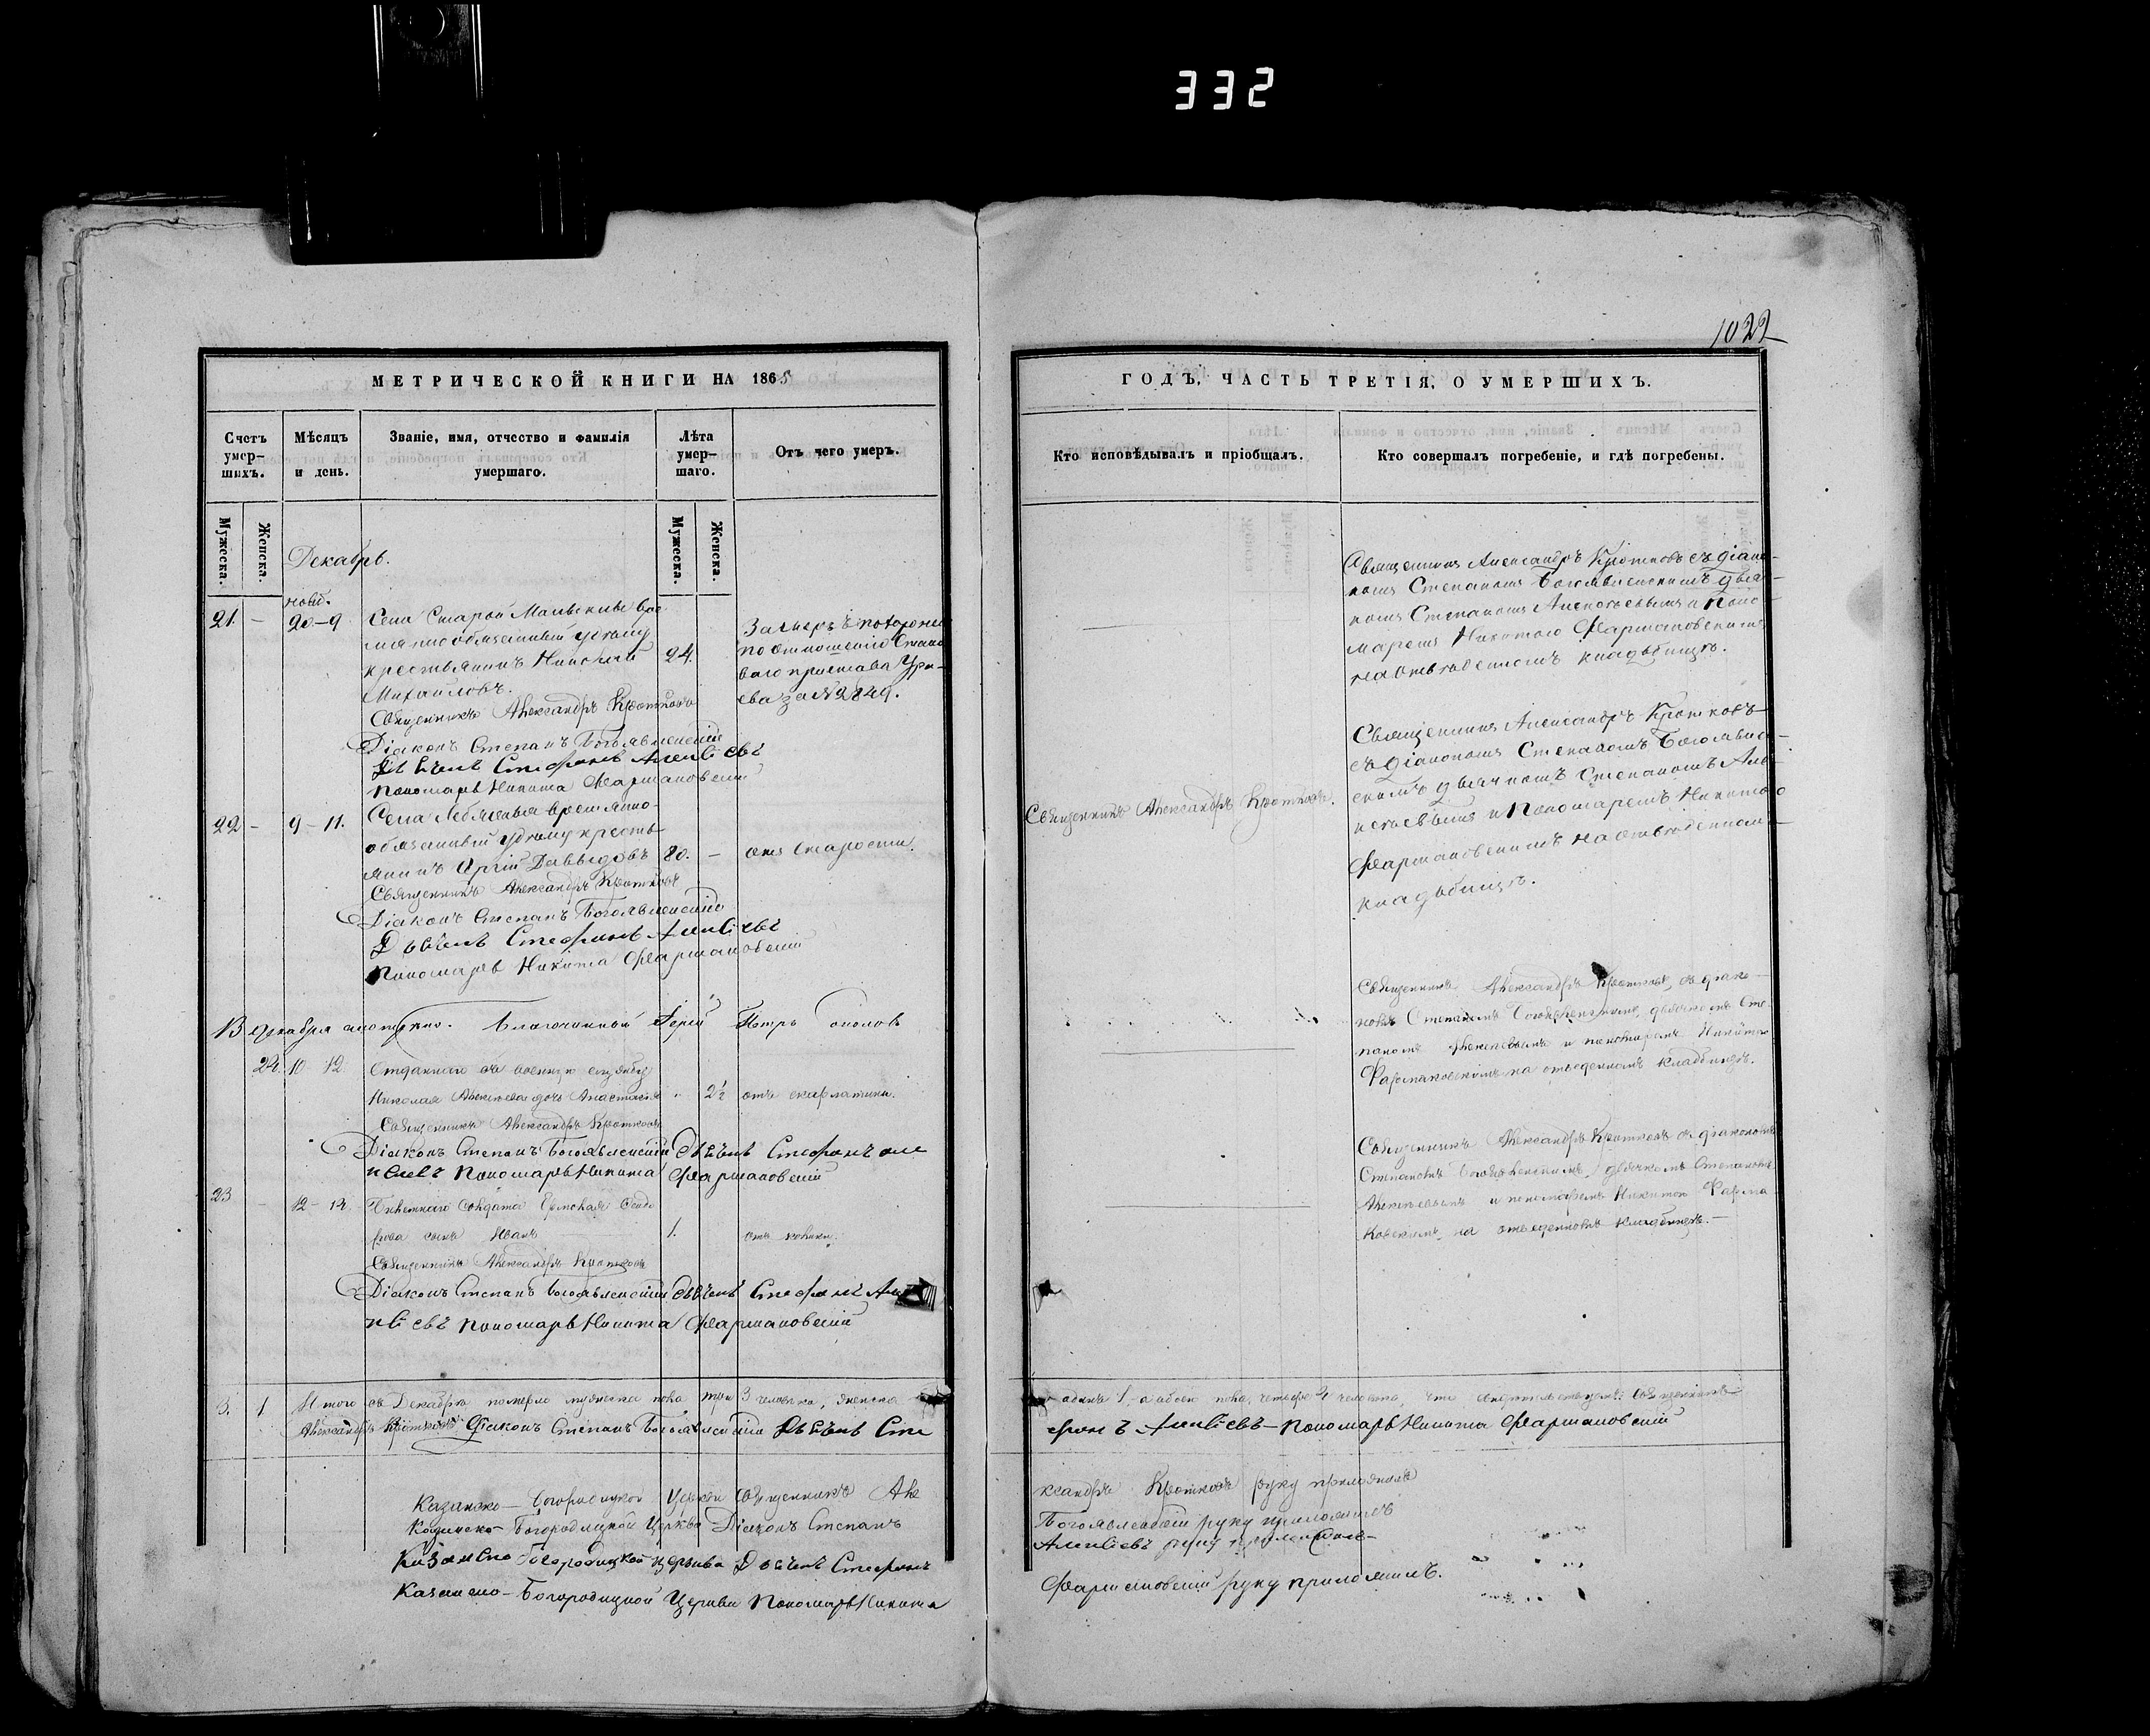 332
1022
МЕТРИЧЕСКОЙ КНИГИ НА 1865
Счетъ умер-
шихъ.
Мѣсяцъ
и день.
Званіе, имя, отчество и фамилія
умершаго.
Лѣта
умер-
шаго.
Отъ чего умеръ.
Мужеска.
Женска.
Мужеска.
Женска.
Декабрь.
нояб.
21. – 20–9
Села Старой
крестьянинъ Николай
Михайловъ.
24.
Замерзъ похоронен
по отношенію Стано
ваго пристава
за № 2849.
Священникъ Александръ Кротковъ
Діаконъ Степанъ Богоявленскій
Дьячекъ Стефанъ Алексѣевъ
Пономарь Никита Фармаковскій
22 – 9–11.
Села Лебяжья временно-
обязанный удѣлу кресть
янинъ Давыдовъ
80. –
отъ старости.
Священникъ Александръ Кротковъ
Діаконъ Степанъ Богоявленскій
Дьячекъ Стефанъ Алексѣевъ
Пономарь Никита Фармаковскій
13 декабря смотрѣно. Благочинный Іерей Петръ
22. 10 12
Отданнаго въ военную службу
Николая Алексѣева дочь Анастасія
„ 2½ отъ скарлатины.
Священникъ Александръ Кротковъ
Діаконъ Степанъ Богоявленскій Дьячекъ Стефанъ Але
ксѣевъ Пономарь Никита Фармаковскій
23 – 12–14.
Билетнаго солдата Ермолая Сидо
рова сынъ Иванъ
1.
Священникъ Александръ Кротковъ
Діаконъ Степанъ Богоявленскій Дьячекъ Стефанъ Але
ксѣевъ Пономарь Никита Фармаковскій
3. 1 Итого въ Декабрѣ померло мужеска пола три 3 человѣка, женска
Александръ Кротковъ Діаконъ Степанъ Богоявленскій Дьячекъ Сте
Казанско-Богородицкой Церкви Священникъ Але
Казанско-Богородицкой Церкви Діаконъ Степанъ
Казанско-Богородицкой Церкви Дьячекъ Стефанъ
Казанско-Богородицкой Церкви Пономарь Никита
ГОДЪ, ЧАСТЬ ТРЕТІЯ, О УМЕРШИХЪ.
Кто исповѣдывалъ и пріобщалъ.
Кто совершалъ погребеніе, и гдѣ погребены.
Священникъ Александръ Кротковъ съ діако-
номъ Степаномъ Богоявленскимъ дьяч-
комъ Степаномъ Алексѣевымъ и Поно
маремъ Никитою Фармаковскимъ
на отведенномъ кладбищѣ.
Священникъ Александръ Кротковъ.
Священникъ Александръ Кротковъ
съ діакономъ Степаномъ Богоявлен-
скимъ дьячкомъ Степаномъ Але-
ксѣевымъ и Пономаремъ Никитою
Фармаковскимъ на отведенномъ
кладбищѣ.
Священникъ Александръ Кротковъ, съ діако-
номъ Степаномъ Богоявленскимъ, дьячкомъ Сте
паномъ Алексѣевымъ и пономаремъ Никитою
Фармаковскимъ на отведенномъ кладбищѣ.
Священникъ Александръ Кротковъ съ діакономъ
Степаномъ Богоявленскимъ, дьячкомъ Степаномъ
Алексѣевымъ и пономаремъ Никитою Фарма
ковскимъ, на отведенномъ кладбищѣ.–
одинъ 1, а обоего пола четыре 4 человѣка, что свидѣтельствуемъ: Священникъ
фанъ Алексѣевъ – Пономарь Никита Фармаковскій
ксандръ Кротковъ руку приложилъ
Богоявленскій руку приложилъ
Алексѣевъ руку приложилъ
Фармаковскій руку приложилъ.